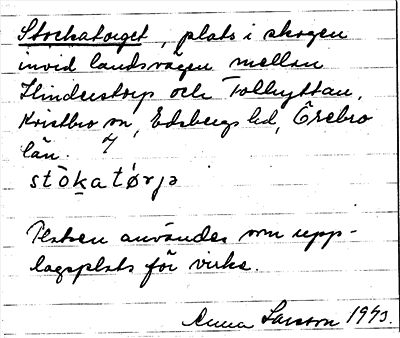 Stockatorget, plats i skogen
invid landsvägen mellan
Hinderstorp och Tolhyttan,
Kvistbro sn, Edsbergs hd, Örebro
län.
stòkatórjə
Platsen användes som upp-
lagsplats för virke.
Anna Larsson 1943.